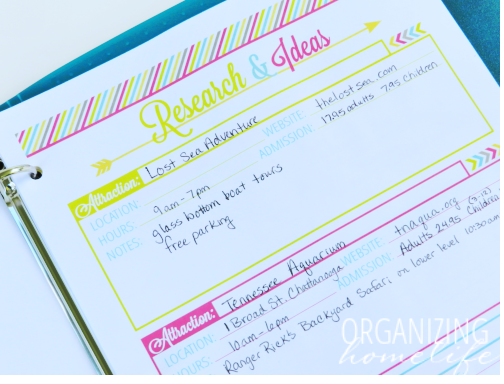 Research & Ideas
Attraction: Lost Sea Adventure
LOCATION: WEBSITE: thelostsea.com
HOURS: 9am-7pm ADMISSION: 17.95 adults 7.95 children
NOTES: glass bottom boat tours
free parking
Attraction: Tennessee Aquarium
LOCATION: 1 Broad St. Chattanooga WEBSITE: tnaqua.org
HOURS: 10am-6pm ADMISSION: Adults 24.95 Children (3-12)
Ranger Rick's Backyard Safari on lower level 10:30am
ORGANIZING
homelife